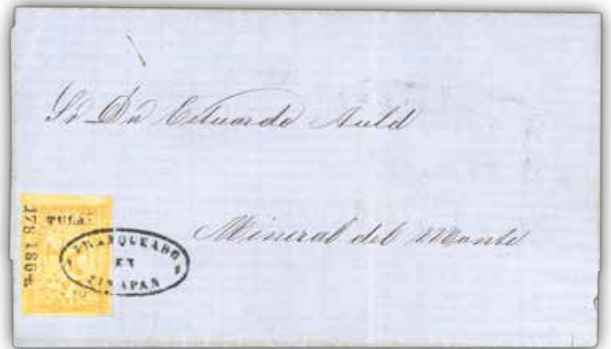 Sr Dn Eduardo Auld
Mineral del Monte
TULA
178 1864
FRANQUEADO
EN
ZIMAPAN